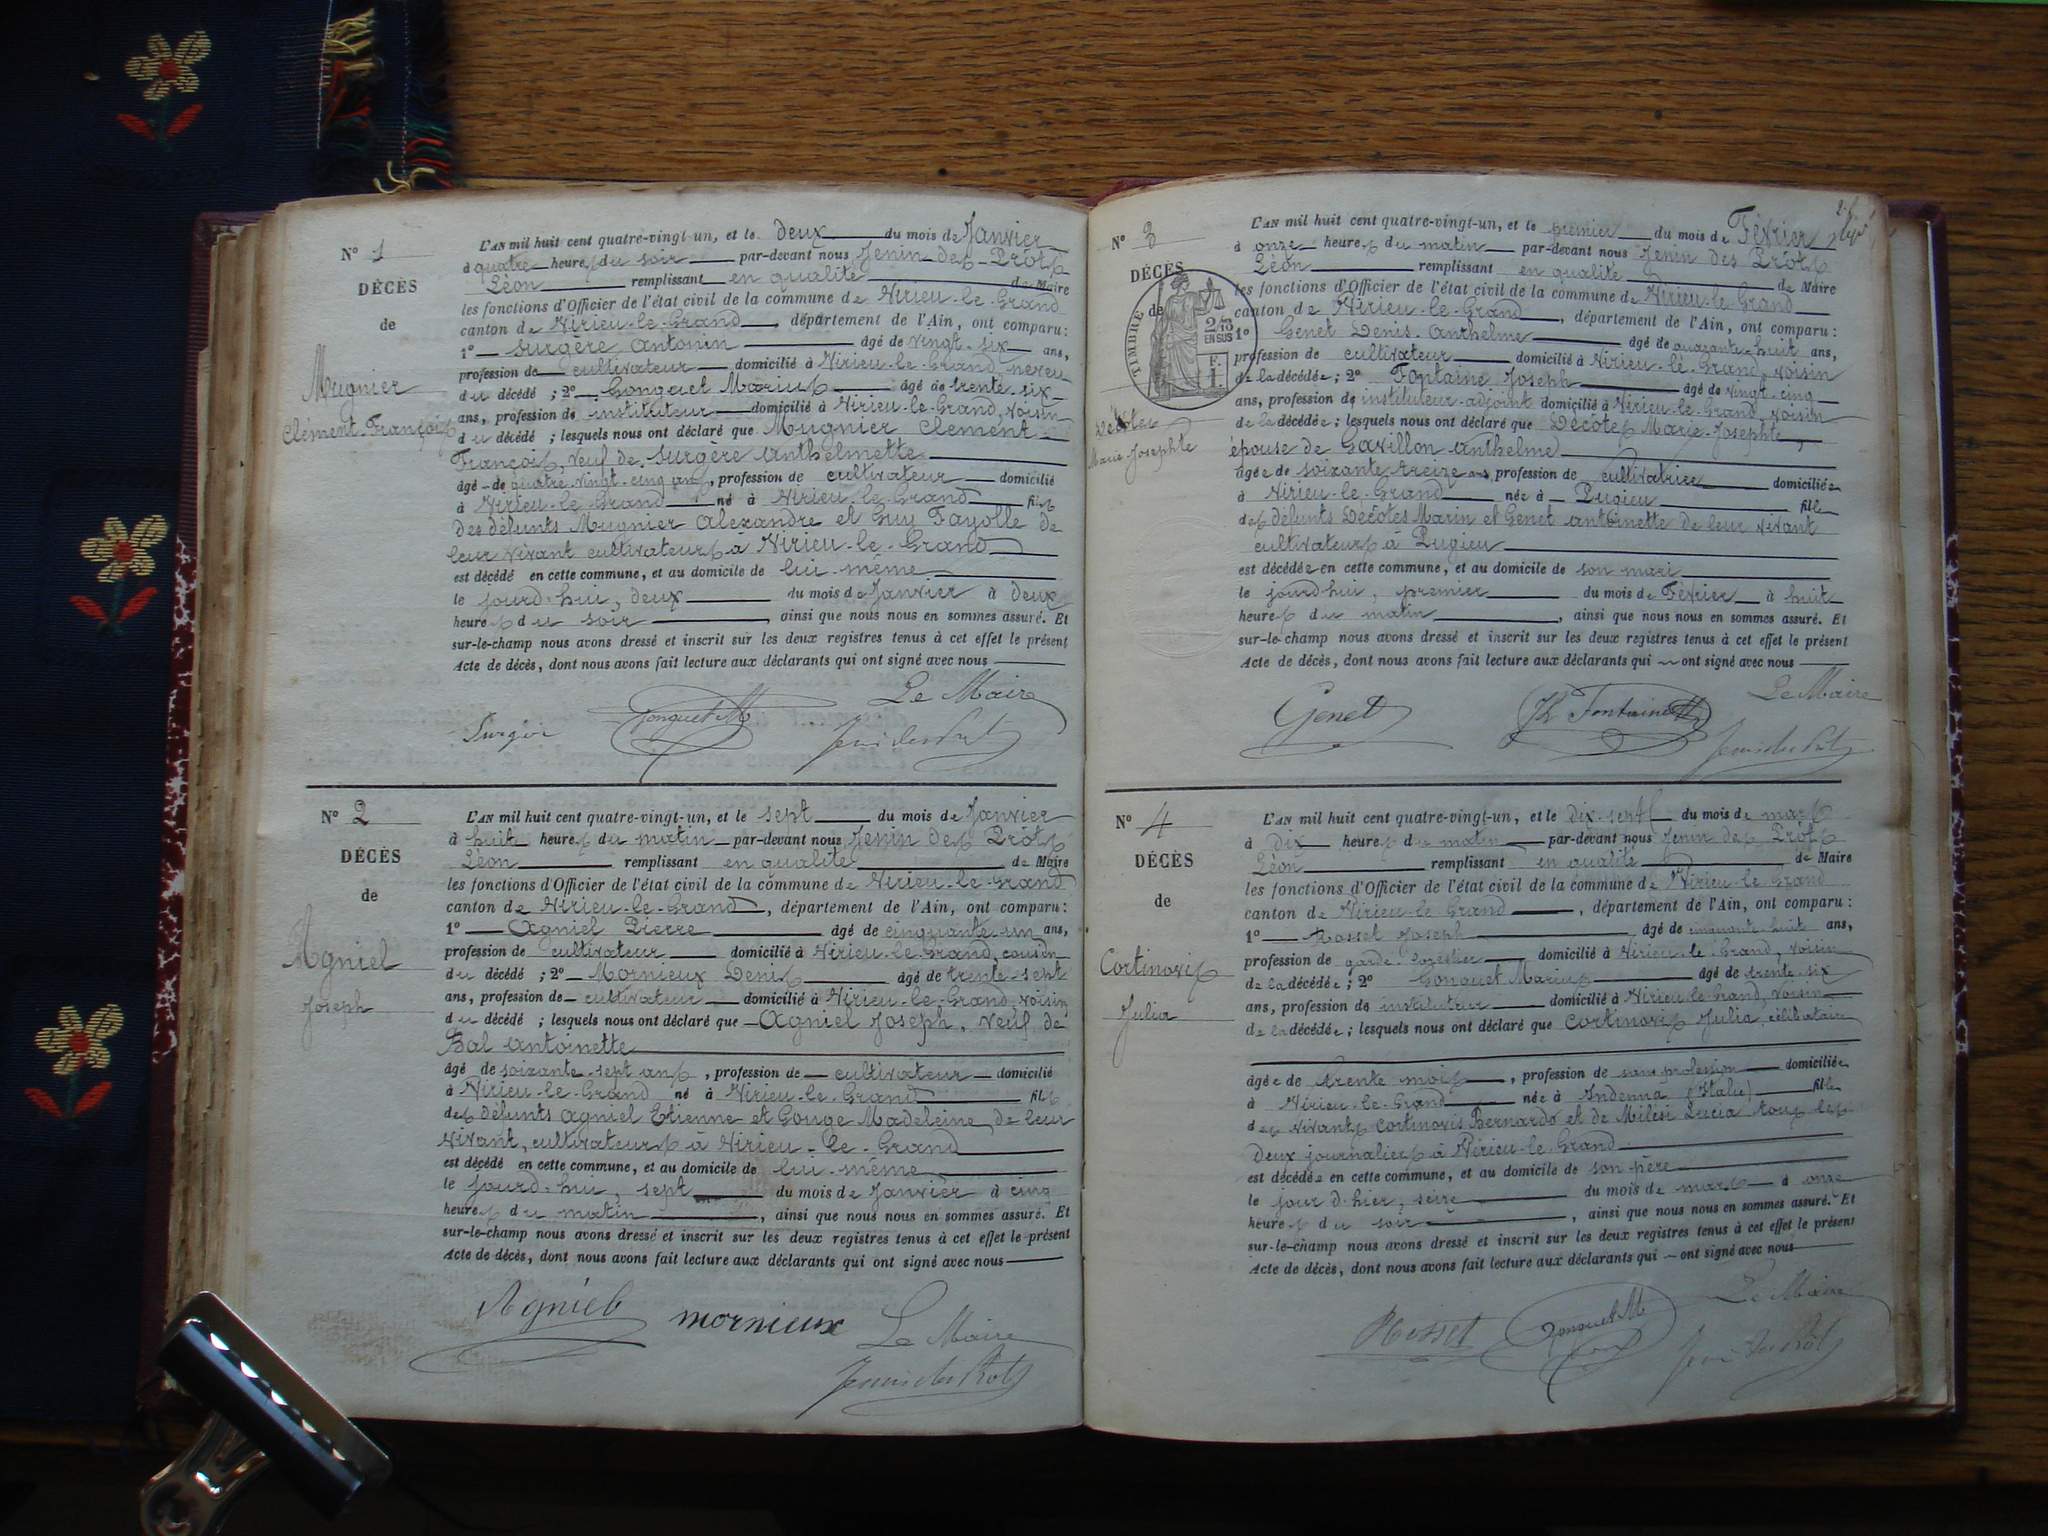 N° 1
DÉCÈS
de
Mugnier
Clément François
L'AN mil huit cent quatre-vingt-un, et le deux du mois de Janvier
à quatre heures du soir par-devant nous Jenin des Prôts
Léon remplissant en qualité de Maire
les fonctions d'Officier de l'état civil de la commune de Virieu-le-Grand
canton de Virieu-le-Grand, département de l'Ain, ont comparu:
1° Surgère Antonin âgé de vingt-six ans,
profession de cultivateur domicilié à Virieu-le-Grand, neveu
du décédé; 2° Gonguet Marius âgé de trente-six
ans, profession de instituteur domicilié à Virieu-le-Grand, voisin
du décédé; lesquels nous ont déclaré que Mugnier Clément
François, veuf de Surgère Anthelmette
âgé de quatre-vingt-cinq ans, profession de cultivateur domicilié
à Virieu-le-Grand né à Virieu-le-Grand fils
des défunts Mugnier Alexandre et Guy Fayolle de
leur vivant cultivateurs à Virieu-le-Grand
est décédé en cette commune, et au domicile de lui-même
le jourd'hui, deux du mois de Janvier à deux
heures du soir, ainsi que nous nous en sommes assuré. Et
sur-le-champ nous avons dressé et inscrit sur les deux registres tenus à cet effet le présent
Acte de décès, dont nous avons fait lecture aux déclarants qui ont signé avec nous
Le Maire
Gonguet M
Jenin des Prôts
N° 2
DÉCÈS
de
Agniel
Joseph
L'AN mil huit cent quatre-vingt-un, et le sept du mois de Janvier
à huit heures du matin par-devant nous Jenin des Prôts
Léon remplissant en qualité de Maire
les fonctions d'Officier de l'état civil de la commune de Virieu-le-Grand
canton de Virieu-le-Grand, département de l'Ain, ont comparu:
1° Agniel Pierre âgé de cinquante-un ans,
profession de cultivateur domicilié à Virieu-le-Grand, cousin
du décédé; 2° Mornieux Denis âgé de trente-sept
ans, profession de cultivateur domicilié à Virieu-le-Grand, voisin
du décédé; lesquels nous ont déclaré que Agniel Joseph, veuf de
Bal Antoinette
âgé de soixante-sept ans, profession de cultivateur domicilié
à Virieu-le-Grand né à Virieu-le-Grand fils
des défunts Agniel Etienne et Gouge Madeleine de leur
vivant, cultivateurs à Virieu-le-Grand
est décédé en cette commune, et au domicile de lui-même
le jourd'hui, sept du mois de Janvier à cinq
heures du matin, ainsi que nous nous en sommes assuré. Et
sur-le-champ nous avons dressé et inscrit sur les deux registres tenus à cet effet le présent
Acte de décès, dont nous avons fait lecture aux déclarants qui ont signé avec nous
Agniel mornieux Le Maire
Jenin des Prôts
N° 3
DÉCÈS
de
TIMBRE
2/10
EN SUS
F.
1.
Décotes
Marie Josephte
L'AN mil huit cent quatre-vingt-un, et le premier du mois de Février
à onze heures du matin par-devant nous Jenin des Prôts
Léon remplissant en qualité de Maire
les fonctions d'Officier de l'état civil de la commune de Virieu-le-Grand
canton de Virieu-le-Grand, département de l'Ain, ont comparu:
1° Genet Denis-Anthelme âgé de quarante-huit ans,
profession de cultivateur domicilié à Virieu-le-Grand, voisin
de la décédée; 2° Fontaine Joseph âgé de vingt-cinq
ans, profession de instituteur-adjoint domicilié à Virieu-le-Grand, voisin
de la décédée; lesquels nous ont déclaré que Décotes Marie-Josephte,
épouse de Gavillon Anthelme
âgée de soixante-treize ans, profession de cultivatrice domiciliée
à Virieu-le-Grand née à Pugieu fille
des défunts Décotes Marin et Genet Antoinette de leur vivant
cultivateurs à Pugieu
est décédée en cette commune, et au domicile de son mari
le jourd'hui, premier du mois de Février à huit
heures du matin, ainsi que nous nous en sommes assuré. Et
sur-le-champ nous avons dressé et inscrit sur les deux registres tenus à cet effet le présent
Acte de décès, dont nous avons fait lecture aux déclarants qui ont signé avec nous
Le Maire
Genet Jh Fontaine
Jenin des Prôts
N° 4
DÉCÈS
de
Cortinovis
Julia
L'AN mil huit cent quatre-vingt-un, et le dix-sept du mois de mars
à dix heures du matin par-devant nous Jenin des Prôts
Léon remplissant en qualité de Maire
les fonctions d'Officier de l'état civil de la commune de Virieu-le-Grand
canton de Virieu-le-Grand, département de l'Ain, ont comparu:
1° Rosset Joseph âgé de cinquante-huit ans,
profession de garde forestier domicilié à Virieu-le-Grand, voisin
de la décédée; 2° Gonguet Marius âgé de trente-six
ans, profession de instituteur domicilié à Virieu-le-Grand, voisin
de la décédée; lesquels nous ont déclaré que Cortinovis Julia, célibataire
âgée de trente mois, profession de sans profession domiciliée
à Virieu-le-Grand née à Indenna (Italie) fille
des vivants Cortinovis Bernardo et de Milesi Lucia tous les
deux journaliers à Virieu-le-Grand
est décédée en cette commune, et au domicile de son père
le jour d'hier, seize du mois de mars à onze
heures du soir, ainsi que nous nous en sommes assuré. Et
sur-le-champ nous avons dressé et inscrit sur les deux registres tenus à cet effet le présent
Acte de décès, dont nous avons fait lecture aux déclarants qui ont signé avec nous
Le Maire
Rosset Gonguet M
Jenin des Prôts